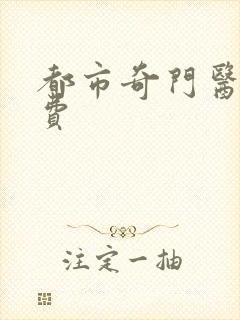 都市奇門醫
費
注定一抽